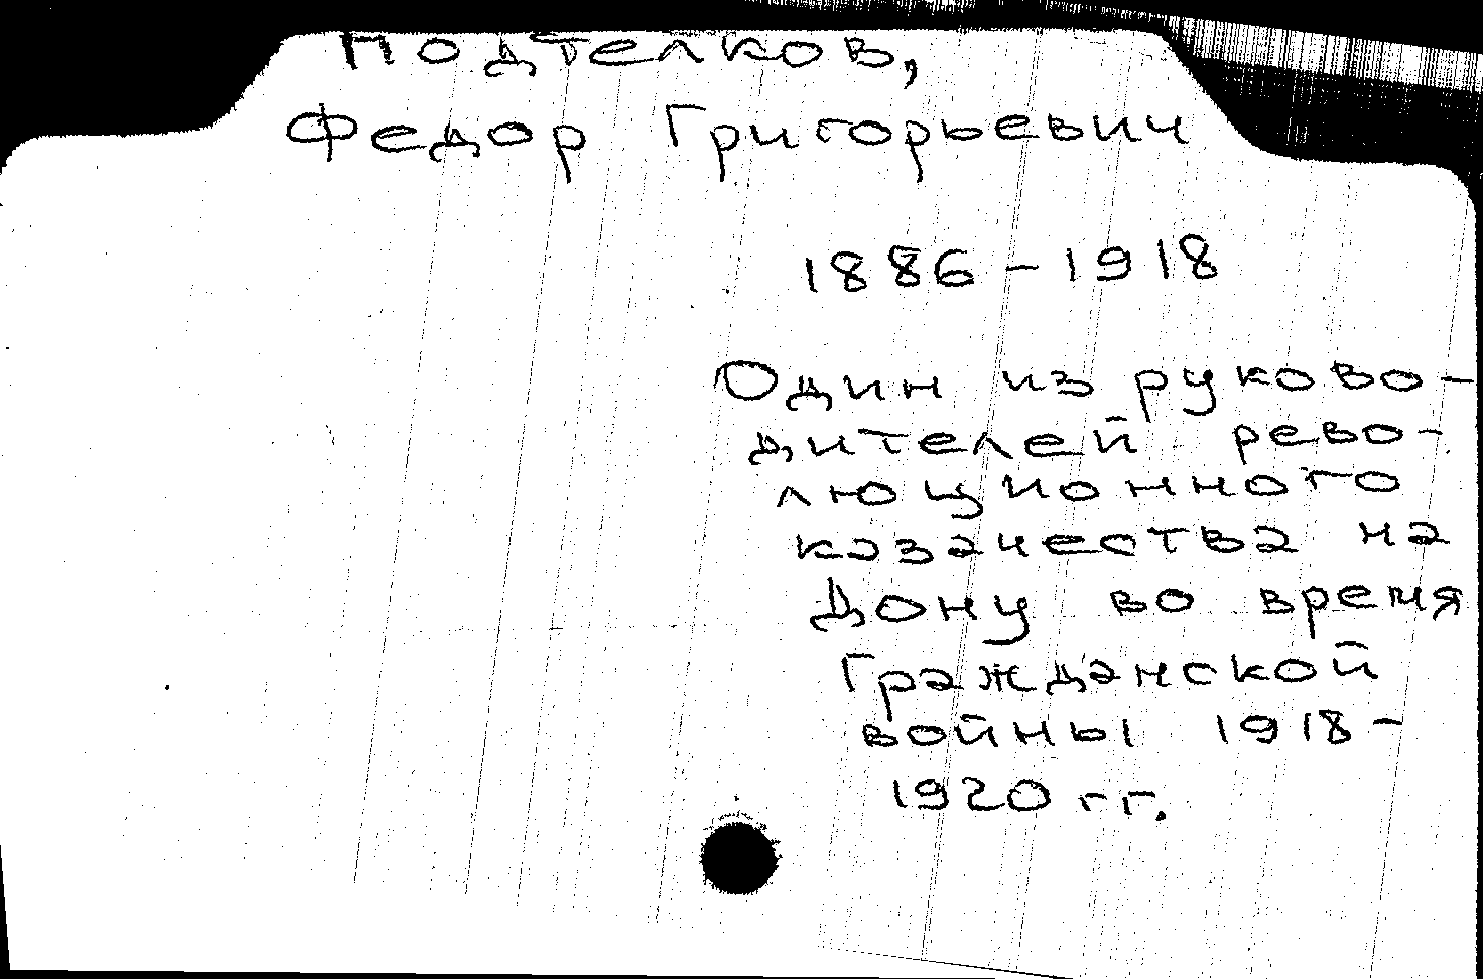 Подтелков,
Федор Григорьевич
1886-1918
Один из руково-
дителей рево-
люционного
казачества на
Дону во время
Гражданской
войны 1918-
1920 гг.